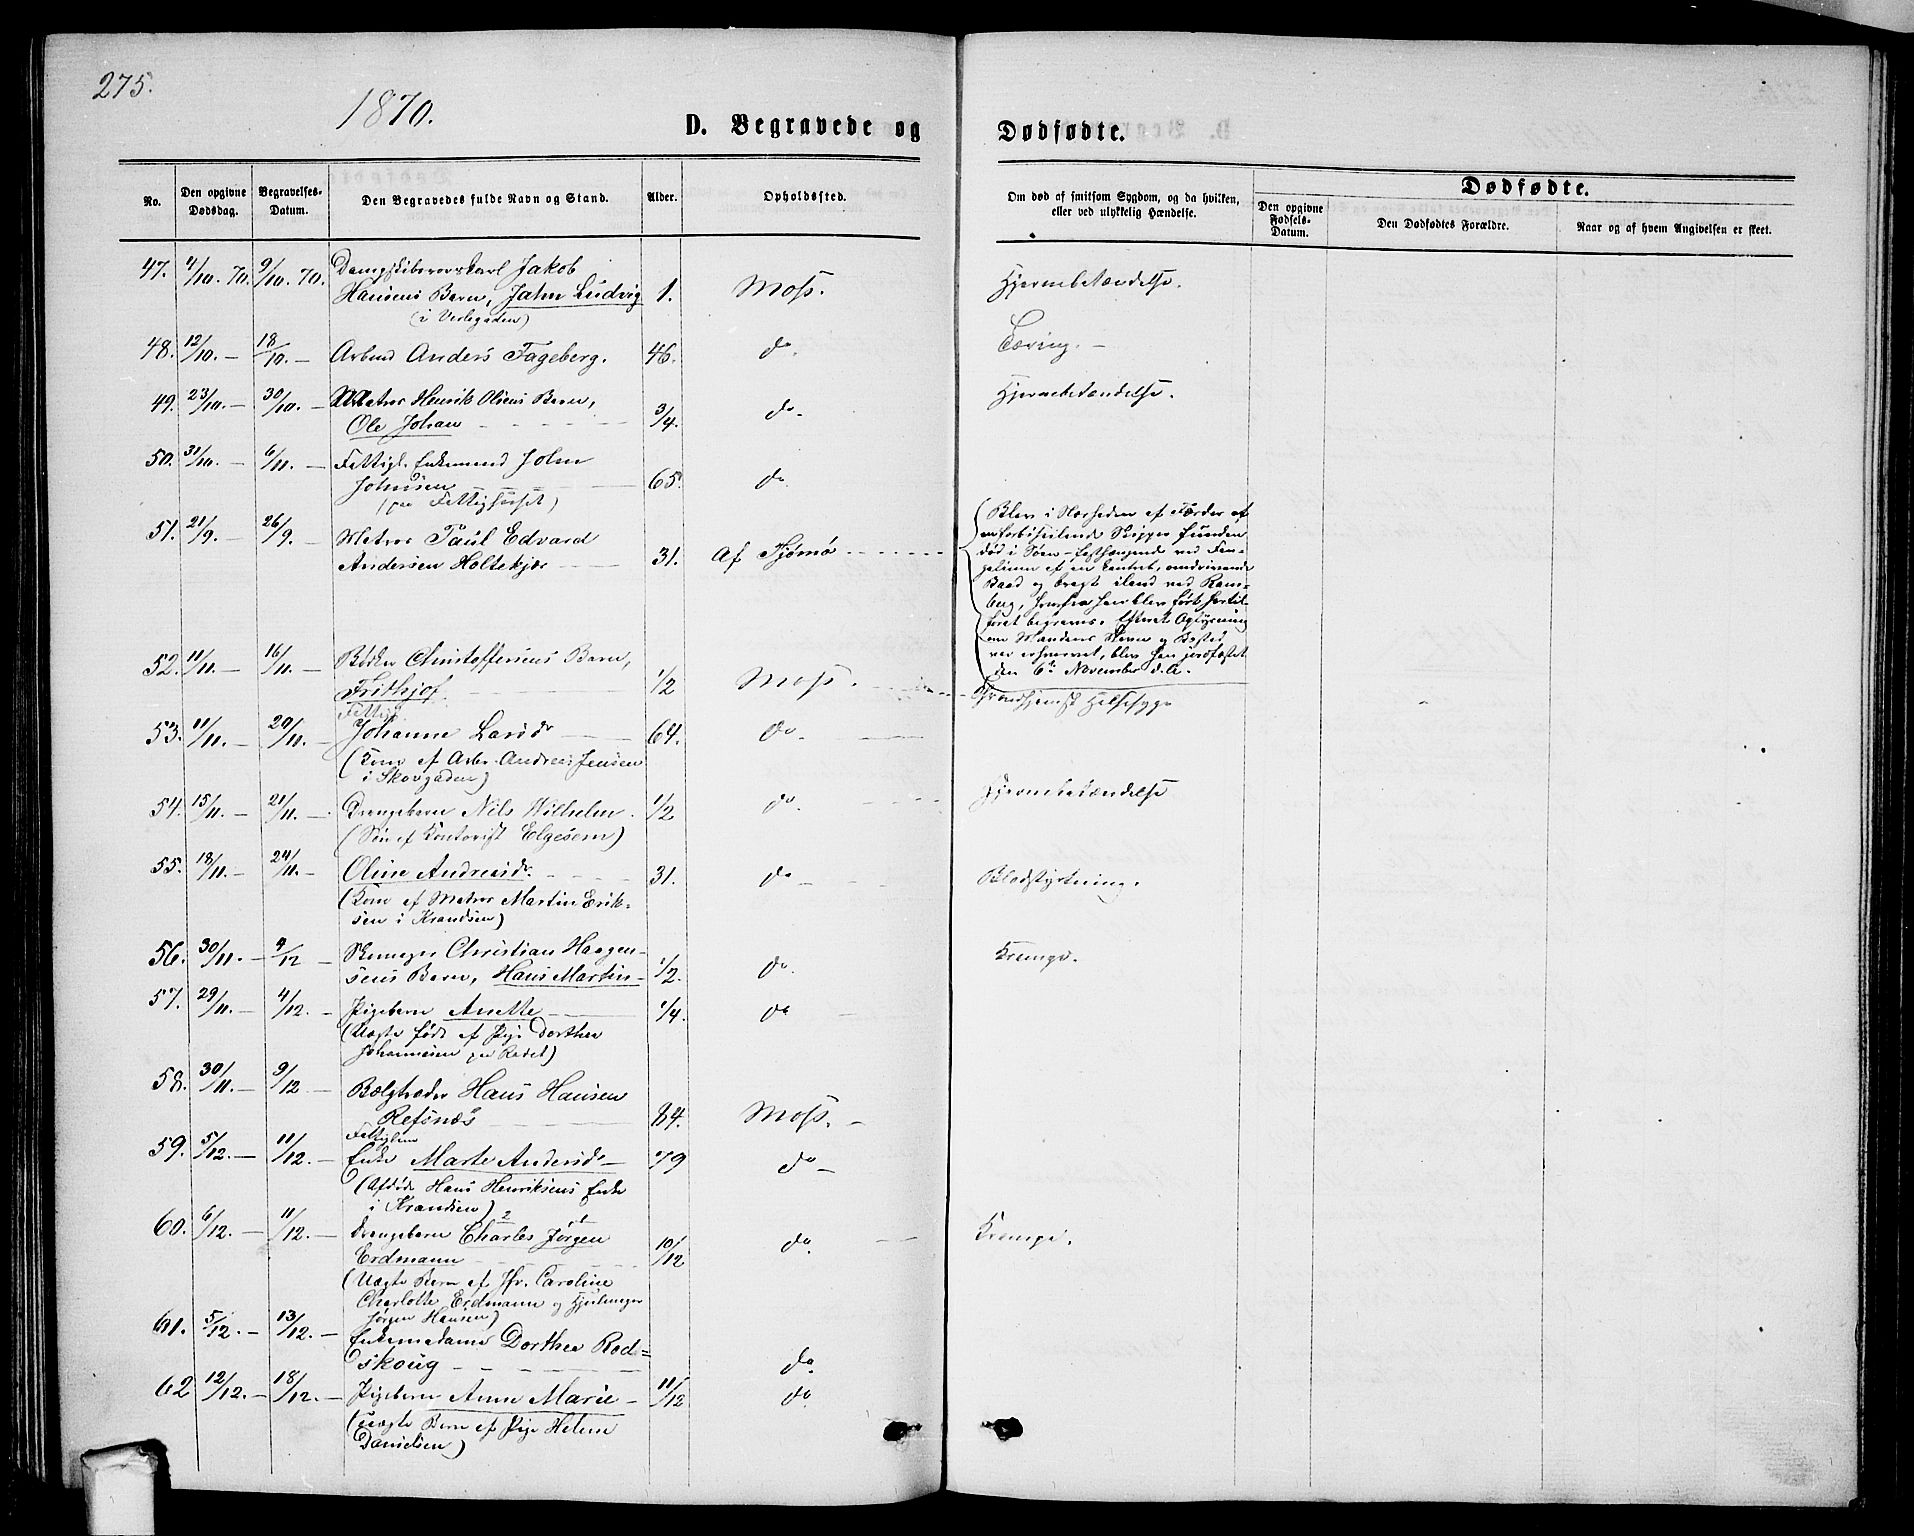 275.
1870.
D. Begravede og
Dødfødte.
No.
Den opgivne Dødsdag.
Begravelses-Datum.
Den Begravedes fulde Navn og Stand.
Alder.
Opholdssted.
Om død af smitsom Sygdom, og da hvilken, eller ved ulykkelig Hændelse.
Dødfødte.
Den opgivne Fødsels-Datum.
Den Dødfødtes Forældre.
Naar og af hvem Angivelsen er skeet.
47. 4/10. 70. 9/10. 70. Jakob
Hansens Barn, Jahn Ludvig 1. Moss. Hjernebetændelse.
(i Verlegaden)
48. 12/10. — 18/10. — Arbmd Anders Fageberg. 46. do. Tæring. —
49. 23/10. — 30/10. — Matros Henrik Olsens Barn, Hjernebetændelse.
Ole Johan 3/4. do-
50. 31/10. — 6/11. — Fattigl. Enkemand John
Johnsen 65. do
(paa Fattighuset)
51. 21/9. — 26/9. — Matros Paul Edvard
Andersen Holtekjær 31. Af Tjømø
Blev i Nærheden af Færder af
en forbiseilende Skipper funden
død i Søen - fasthængende ved Fan-
gelinen af en kantret, omdrivende
Baad og bragt iland ved Ram-
berg, hvorfra han blev ført hertil
foret begraves. Efterat Oplysning
om Mandens Navn og Bosted
var erhvervet, blev han jordfæstet
den 6te November d.A.
52. 11/11. — 16/11. — Bødker Christoffersens Barn,
Frithjof. 1/2 Moss. Halssyge
53. 11/11. — 20/11. — Fattigl.
Johanne Larsdr 64. do-
(Kone af Arbr. Andreas Jensen
i Skovgaden)
54. 15/11. — 21/11. — Drengebarn Nils Wilhelm 1/2 do. Hjernebetændelse
(Søn af Kontorist Elgesem)
55. 18/11. — 24/11. — Oline Andreasdr. 31. do Blodstyrtning.
(Kone af Matros Martin Erik-
sen i Krandsen)
56. 30/11. — 4/12 — Skomager Christian Haagen-
sens Barn, Hans Martin 1/2. do. Krampe.
57. 29/11. — 4/12. — Pigebarn Anette 1/4. do
(Uægte født af Pige Dorthea
Johannesen paa Rødet)
58. 30/11. — 9/12 — Bælgtræder Hans Hansen
Refsnæs 84. Moss. —
59. 5/12. — 11/12. — Fattiglem
Enke Marte Andersdr 79 do —
(Afdøde Hans Henriksens Enke
i Krandsen)
60. 6/12. — 11/12. — Drengebarn Charles Jørgen
Erdmann 10/12 do. Krampe.
(Uægte Barn af Jfr. Caroline
Charlotte Erdmann og Hjulmager
Jørgen Hansen)
61. 5/12. — 13/12. — Enkemadame Dorthea Rod=
skoug do
62 12/12. — 18/12. — Pigebarn Anne Marie 11/12 do
(uægte Barn af Pige Helene
Danielsen)